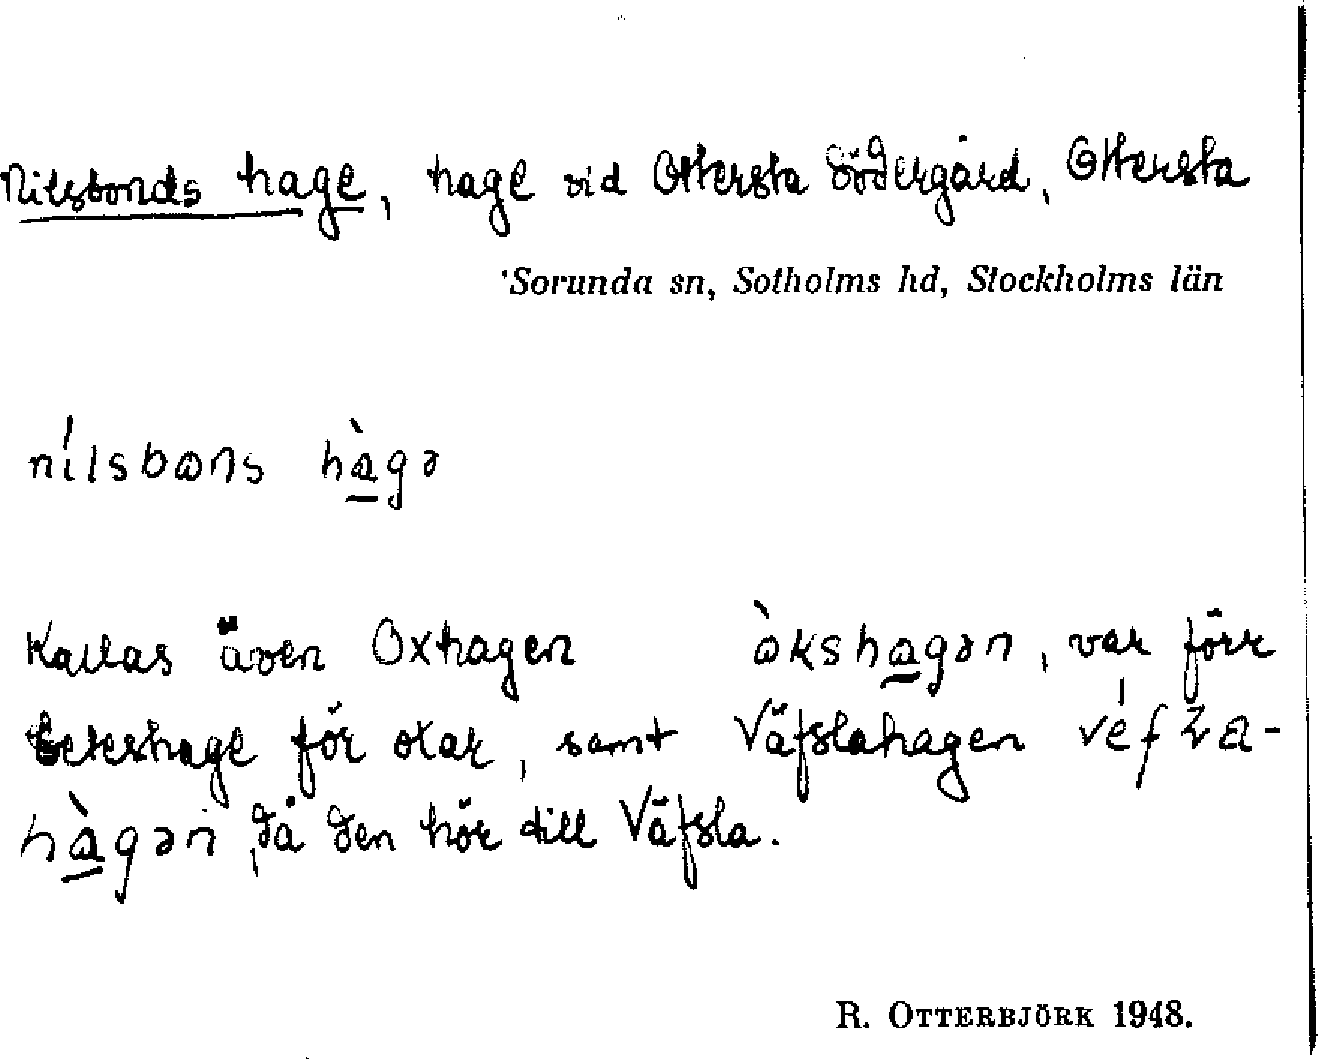 Nilsbonds hage, hage vid Ottersta Södergård, Ottersta
Sorunda sn, Sotholms hd, Stockholms län
nílsbωns hàgə
Kallas även Oxhagen òkshagən, var förr
beteshage för oxar, samt Väfslahagen véfza-
hàgən, då den hör till Väfsla.
R. OTTERBJÖRK 1948.